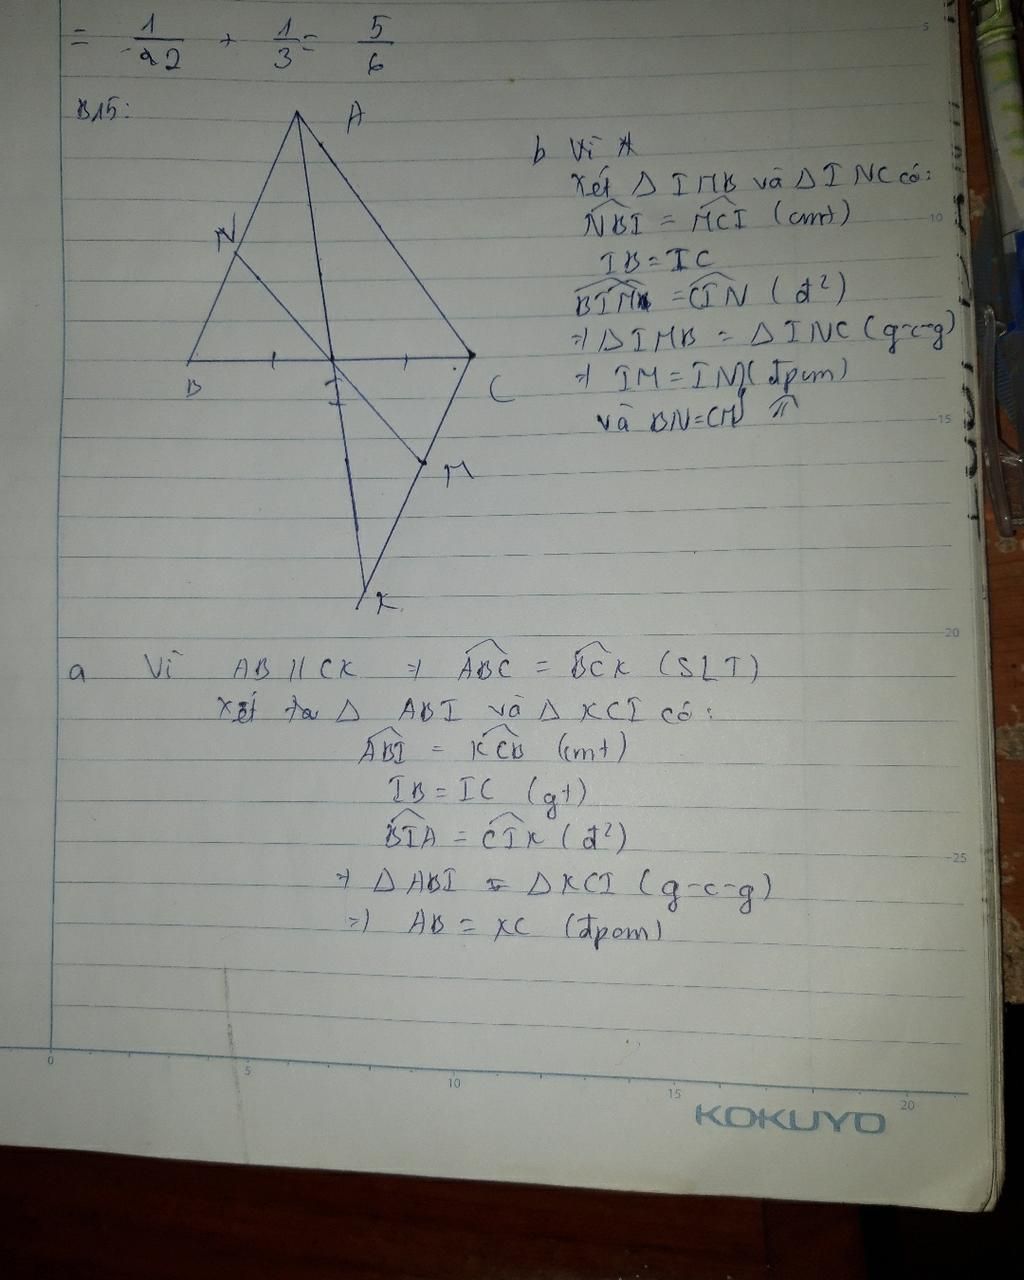 = 1/2 + 1/3 = 5/6
B15:
A
N
B
I
C
M
K
b Vì A
Xét Δ IMB và Δ INC có:
NBI = MCI (cmt)
IB = IC
BIM = CIN (đ²)
=> Δ IMB = Δ INC (g-c-g)
=> IM = IN (đpcm)
và BN = CM
a Vì AB // CK => ABC = BCK (SLT)
Xét Δ ABI và Δ KCI có:
ABI = KCB (cmt)
IB = IC (gt)
BIA = CIK (đ²)
=> Δ ABI = Δ KCI (g-c-g)
=> AB = KC (đpcm)
5
10
15
20
25
0
5
10
15
20
KOKUYO